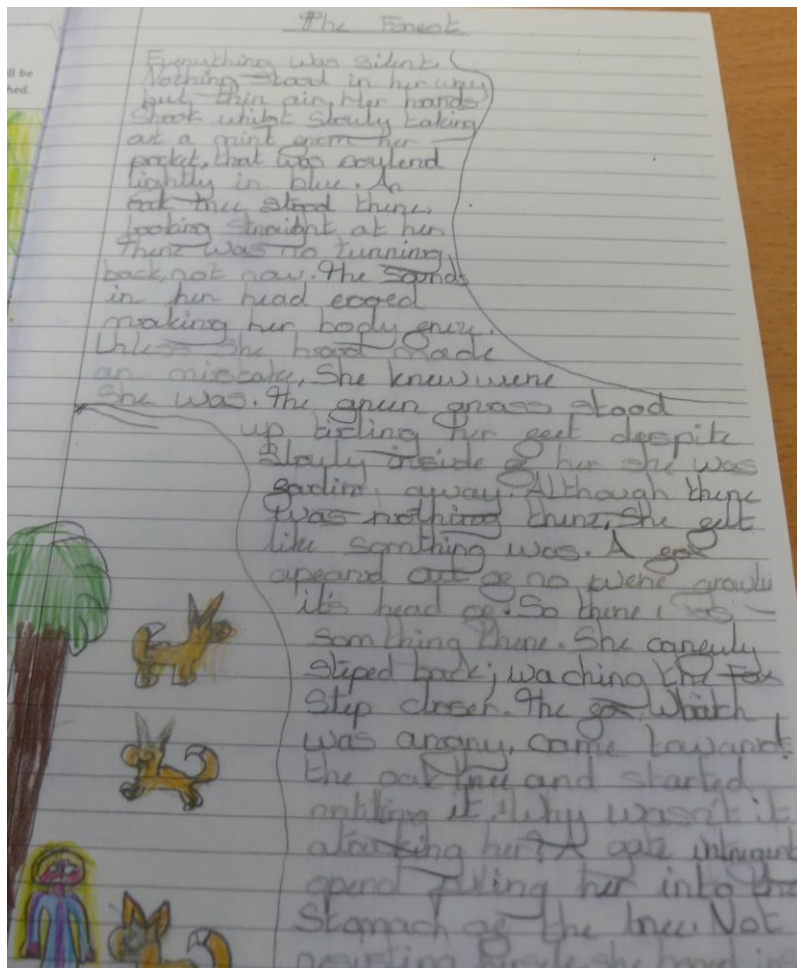 The Forest
ll be
hed.
Everything was silent.
Nothing stood in her way
but thin air. Her hands
Shook whilst slowly taking
out a mint from her
pocket, that was
lightly in blue. An
oak tree stood there,
looking straight at her.
There was no turning
back, not now. The sounds
in her head
making her body
Unless she had made
an mistake, She knew were
She was. The green grass stood
up her feet despite
Slowly inside of her she was
away. Although there
was nothing there, She felt
like somthing was. A fox
apeard out of no were
it's head of. So there was
somthing there. She carefuly
steped back; waching the Fox
Step closer. The fox, Which
was angry, came towards
the oak tree and started
it. Why wasn't it
her? A gate
opend her into the
Stomach of the tree. Not
resisting she